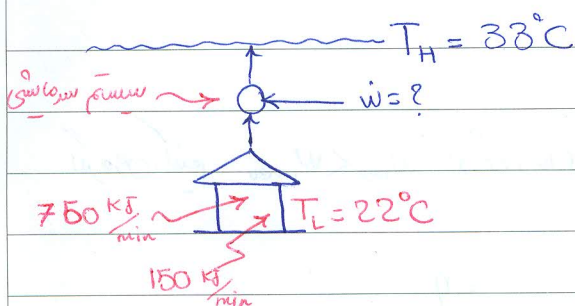 T_H = 33°C
سیستم سرمایشی
ẇ = ?
750 kJ/min
T_L = 22°C
150 kJ/min